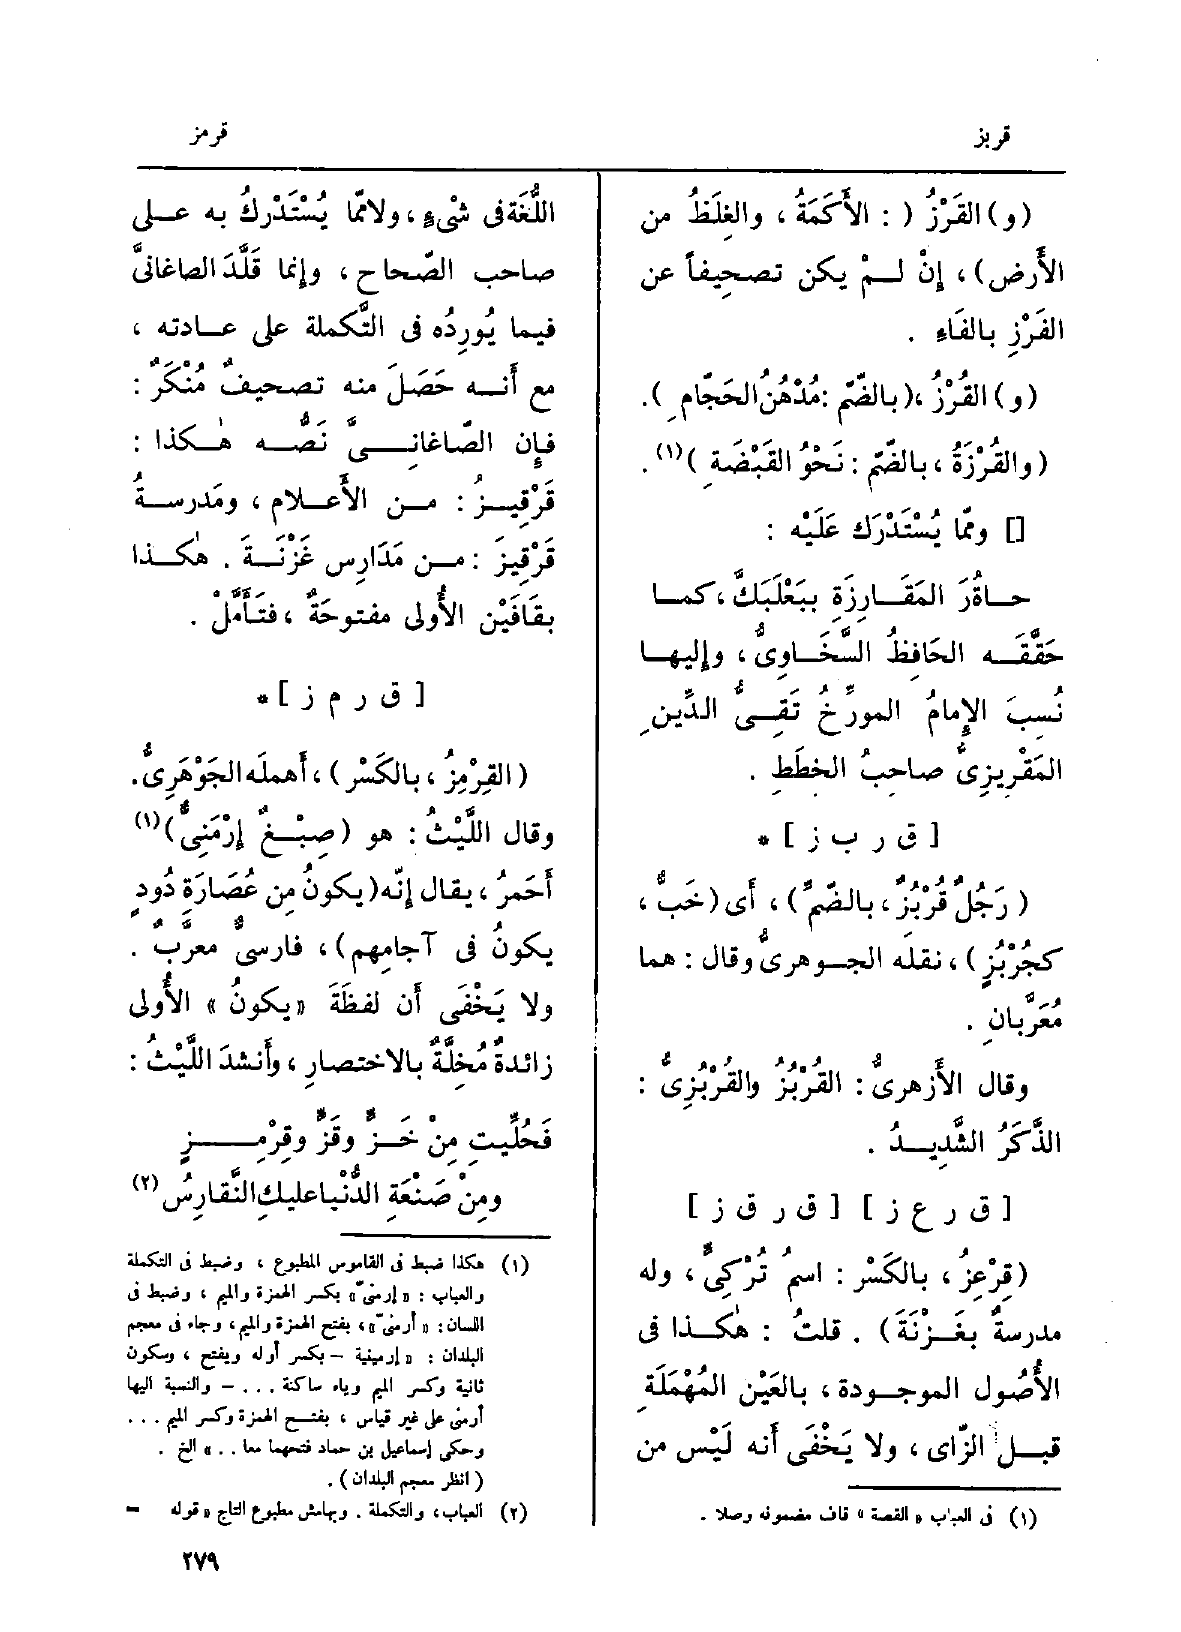 قربز
قرمز
(و) القَرْزُ ( : الأَكَمَةُ ، والغِلَظُ من
الأَرض) ، إِنْ لـمْ يكن تصحيفاً عن
الفَرْزِ بالفَاءِ .
(و) القُرْزُ ،(بالضّمّ :مُدْهُنُ الحَجّام ِ).
(والقُرْزَةُ ، بالضّمّ : نَحْوُ القَبْضَةِ )(١) .
[] وممّا يُسْتَدْرَك عَلَيْه :
حـارَةُ المَقَـارِزَة بِبَعْلَبَكَّ ،كمـا
حَقَّقَـه الحَافِظُ السَّخَـاوِىُّ ، وإِليهـا
نُسِبَ الإِمامُ المورِّخُ تَقِـىُّ الدِّينِ
المَقْرِيزِىُّ صاحبُ الخِطَطِ .
[ ق ر ب ز ] *
( رَجُلٌ قُرْبُزٌ ، بالضّمّ ) ، أَى (خَبٌّ ،
كجُرْبُزٍ ) ، نقله الجـوهرىُّ وقال : هما
مُعَرَّبانِ .
وقال الأَزهرىُّ : القُرْبُزُ والقُرْبُزِىُّ :
الذَّكَرُ الشَّدِيـدُ .
[ ق ر ع ز ] [ ق ر ق ز ]
(قِرْعِزُ ، بالكَسْر : اسمُ تُرْكِىٍّ ، وله
مدرسةٌ بغَـزْنَةَ ) . قلتُ : هٰكـذا فى
الأُصُول الموجودة ، بالعَيْن المُهْمَلَةِ
قبـل الزّاى ، ولا يَخْفَى أَنه لَيْس من
(١) فى العباب « القصة » قاف مضمونه وصلا .
اللُّغَة فى شْىءٍ ، ولا ممّا يُسْتَدْرَكُ به عـلى
صاحب الصّحاح ، وإِنما قَلَّدَ الصاغانىَّ
فيما يُورِدُه فى التَّكملة على عـادته ،
مع أَنـه حَصَلَ منه تصحيفٌ مُنْكَرٌ :
فإِن الصّاغانِـىَّ نَصُّـه هٰـكذا :
قَرْقِيـزُ : مـن الأَعـلام ، ومَدرسـةُ
قَرْقِيزَ : مـن مَدَارِس غَزْنَـةَ . هٰكـذا
بقَافَيْن الأُولى مفتوحَةٌ ، فتَـأَمَّلْ .
[ ق ر م ز ] *
( القِرْمِزُ ، بالكَسْر ) ، أَهمله الجَوْهَرِىُّ.
وقال اللَّيْثُ : هو (صِبْـغٌ إِرْمَنِىٌّ )(١)
أَحمرُ ، يقال إِنّه( يكونُ مِن عُصَارَة دُودٍ
يكونُ فى آجامِهم ) ، فارسىٌّ معرَّبٌ .
ولا يَخْفَى أَن لفظَةَ « يكونُ » الأُولى
زائدةٌ مُخِلَّةٌ بالاختصارِ ، وأَنشدَ اللَّيْثُ :
فَحُلِّيتِ مِنْ خَـزٍّ وقَزٍّ وقِرْمِـــزٍ
ومِنْ صَنْعَةِ الدُّنْيا عليكِ النَّقَارِسُ (٢)
(١) هكذا ضبط فى القاموس المطبوع ، وضبط فى التكملة
والعباب : « إرمنىّ » بكسر الهمزة والميم ، وضبط فى
اللسان : « أرمنىّ » ، بفتح الهمزة والميم ، وجاء فى معجم
البلدان : « إرمينية – بكسر أوله ويفتح ، وسكون
ثانية وكسر الميم وياء ساكنة . . . – والنسبة اليها
أرمنى على غير قياس ، بفتـح الهمزة وكسر الميم . . .
وحكى إسماعيل بن حماد فتحهما معا . . » الخ .
( انظر معجم البلدان ) .
(٢) العباب ، والتكملة . وبهامش مطبوع التاج « قوله =
٢٧٩